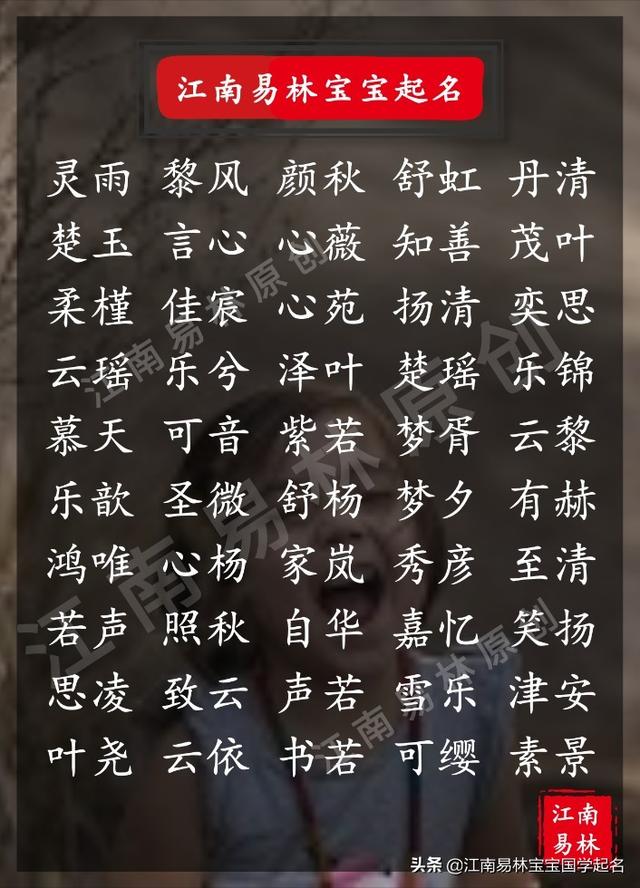 江南易林宝宝起名
灵雨 黎风 颜秋 舒虹 丹清
楚玉 言心 心薇 知善 茂叶
柔槿 佳宸 心苑 扬清 奕思
云瑶 乐兮 泽叶 楚瑶 乐锦
慕天 可音 紫若 梦胥 云黎
乐歆 圣微 舒杨 梦夕 有赫
鸿唯 心杨 家岚 秀彦 至清
若声 照秋 自华 嘉忆 笑扬
思凌 致云 声若 雪乐 津安
叶尧 云依 书若 可缨 素景
江南易林原创
江南易林原创
江南易林原创
江南
易林
头条 @江南易林宝宝国学起名